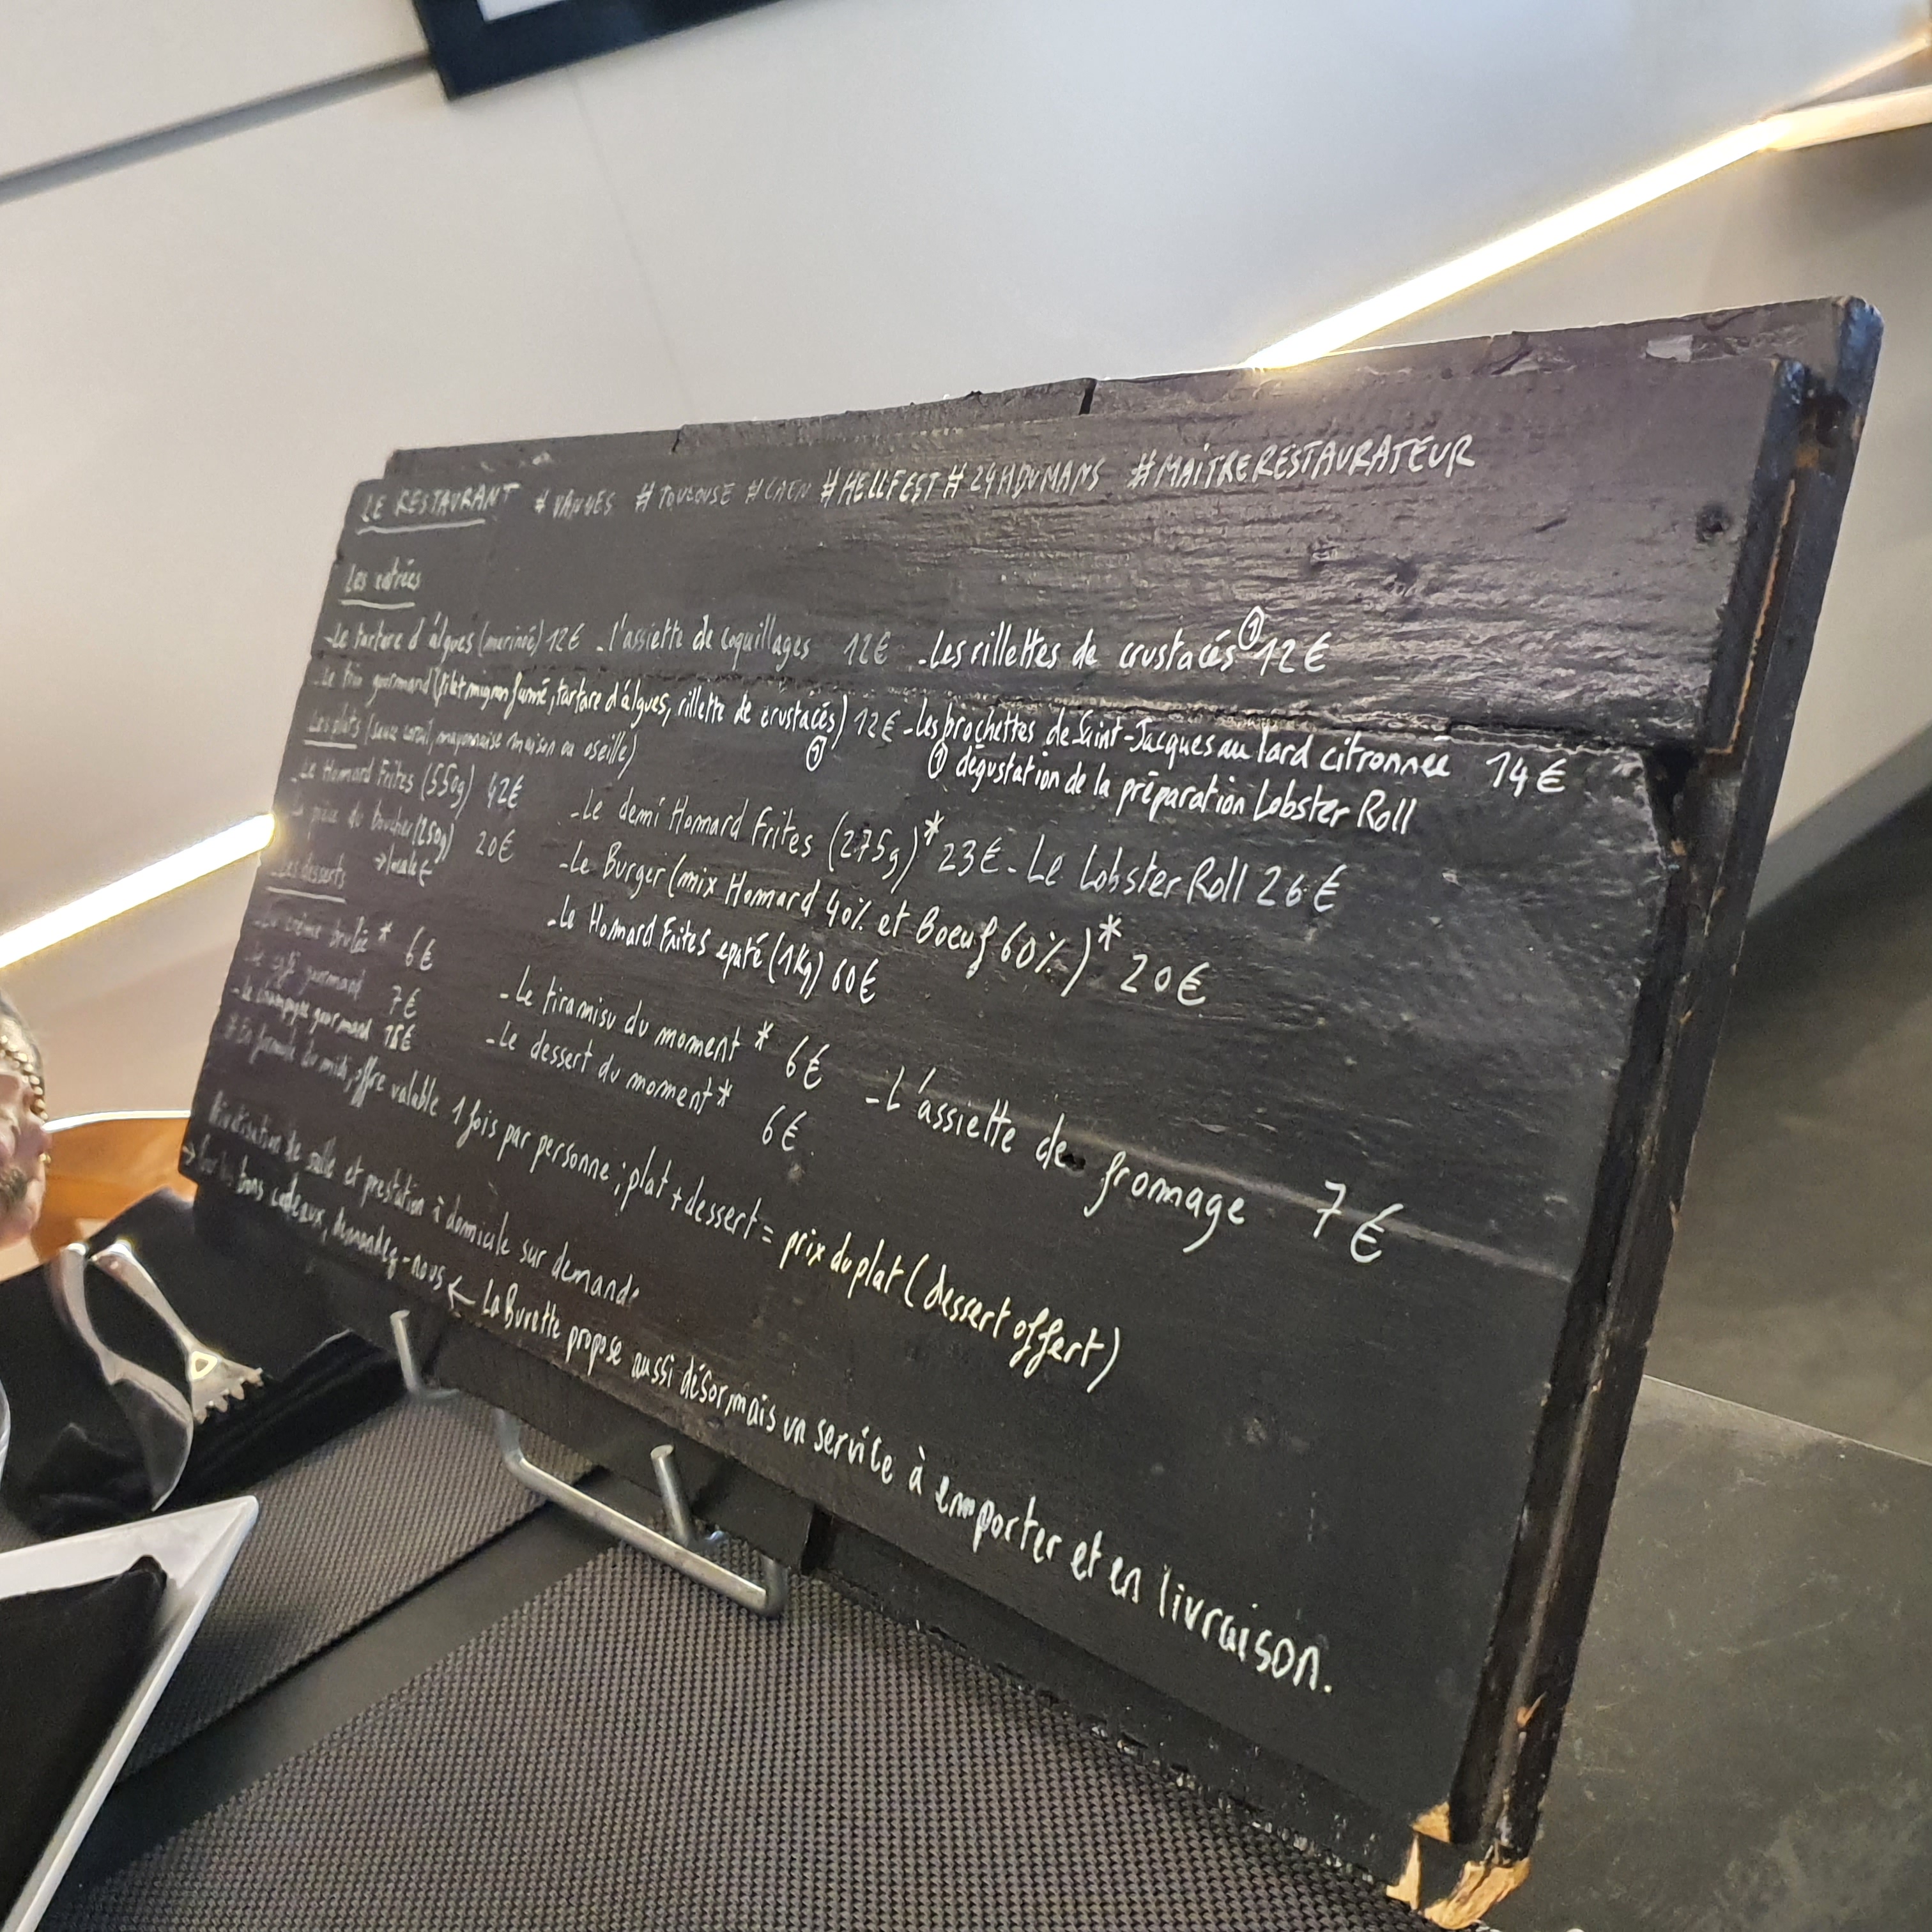 LE RESTAURANT #VANNES #TOULOUSE #CAEN #HELLFEST #24HDUMANS #MAITRERESTAURATEUR
Les entrées
-Le tartare d'algues (marinée) 12€ -l'assiette de coquillages 12€ -Les rillettes de crustacés ① 12€
-Le trio gourmand (filet mignon fumé, tartare d'algues, rillette de crustacés) ① 12€ -Les brochettes de Saint-Jacques au lard citronnée 14€
① dégustation de la préparation Lobster Roll
Les plats (sauce corail, mayonnaise maison ou oseille)
-Le Homard Frites (550g) 42€ -Le demi Homard Frites (275g)* 23€ -Le Lobster Roll 26€
pièce du boucher (250g) 20€ -Le Burger (mix Homard 40% et Boeuf 60%)* 20€
→locale -Le Homard Frites epaté (1Kg) 60€
Les desserts
crème brulée * 6€ -Le tiramisu du moment * 6€ -L'assiette de fromage 7€
café gourmand 7€ -Le dessert du moment* 6€
-Le champagne gourmand
* En formule du midi, offre valable 1 fois par personne ; plat + dessert = prix du plat (dessert offert)
Privatisation de salle et prestation à domicile sur demande
→ bons cadeaux, demandez-nous ← La Buvette propose aussi désormais un service à emporter et en livraison.